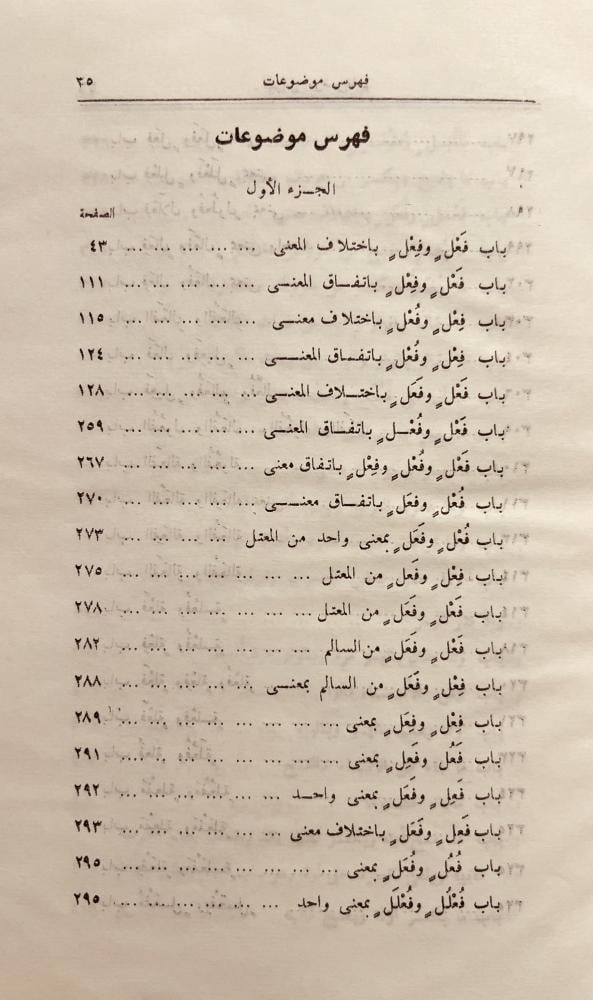 فهرس موضوعات ٣٥
فهرس موضوعات
الجـزء الأول
الصفحة
باب فَعْلٍ وفِعْلٍ باختلاف المعنى ... ... ... ... ... ٤٣
باب فَعْلٍ وفِعْلٍ باتفـاق المعنــى ... ... ... ... ... ١١١
باب فِعْلٍ وفُعْلٍ باختلاف معنــى ... ... ... ... ... ١١٥
باب فِعْلٍ وفُعْلٍ باتفــاق المعنــــى ... ... ... ... ... ١٢٤
باب فَعْلٍ وفَعَلٍ باختــلاف المعنــى ... ... ... ... ... ١٢٨
باب فَعْلٍ وفُعْــلٍ باتفــاق المعنــى ... ... ... ... ... ٢٥٩
باب فَعْلٍ وفُعْلٍ وفِعْلٍ باتفاق معنى ... ... ... ... ٢٦٧
باب فُعْلٍ وفعَلٍ باتفــاق معنــــى ... ... ... ... ٢٧٠
باب فُعْلٍ وفَعَلٍ بمعنى واحد من المعتل ... ... ... ... ٢٧٣
باب فِعْلٍ وفَعَلٍ من المعتل ... ... ... ... ... ... ٢٧٥
باب فَعْلٍ وفَعَلٍ من المعتل ... ... ... ... ... ... ٢٧٨
باب فَعْلٍ وفَعَلٍ من السالم ... ... ... ... ... ... ٢٨٢
باب فِعْلٍ وفَعَلٍ من السالم بمعنــى ... ... ... ... ... ٢٨٨
باب فِعْلٍ وفِعَلٍ بمعنى ... ... ... ... ... ... ... ٢٨٩
باب فَعُل وفَعِلٍ بمعنى ... ... ... ... ... ... ... ٢٩١
باب فَعِلٍ وفَعَلٍ بمعنى واحــد ... ... ... ... ... ... ٢٩٢
باب فَعِلٍ وفَعَلٍ باختلاف معنى ... ... ... ... ... ٢٩٣
باب فُعُلٍ وفُعَلٍ بمعنى ... ... ... ... ... ... ... ٢٩٥
باب فُعْلُلٍ وفُعْلَلٍ بمعنى واحد ... ... ... ... ... ... ٢٩٥